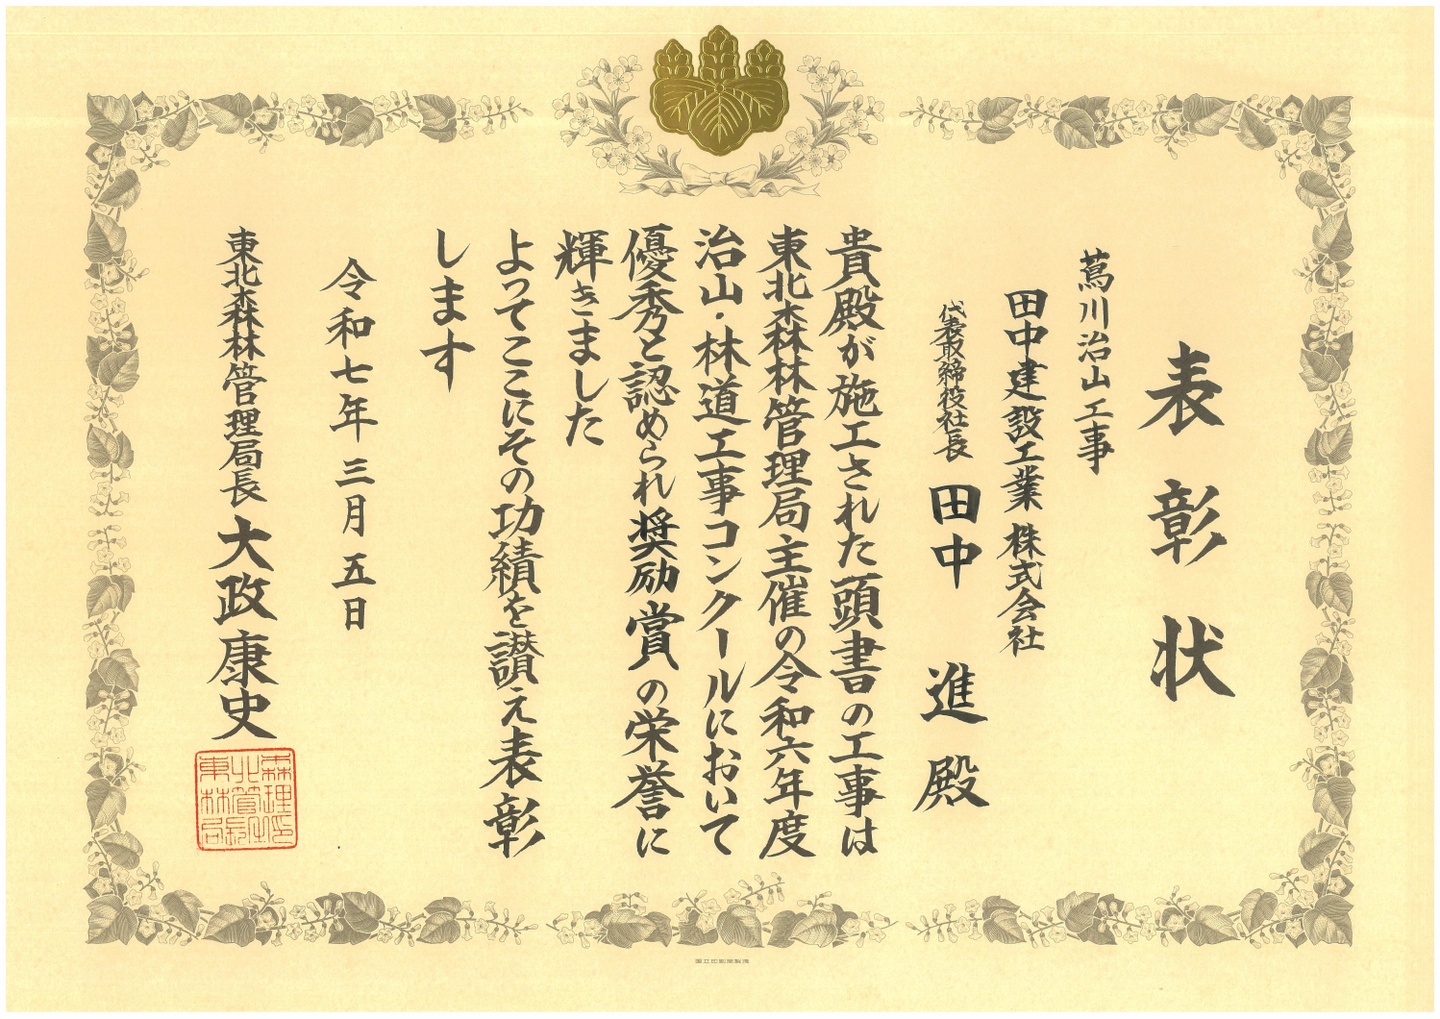 表彰状
蔦川治山工事
田中建設工業株式会社
代表取締役社長 田中 進 殿
貴殿が施工された頭書の工事は
東北森林管理局主催の令和六年度
治山・林道工事コンクールにおいて
優秀と認められ奨励賞の栄誉に
輝きました
よってここにその功績を讃え表彰
します
令和七年三月五日
東北森林管理局長 大政康史
国立印刷局製造